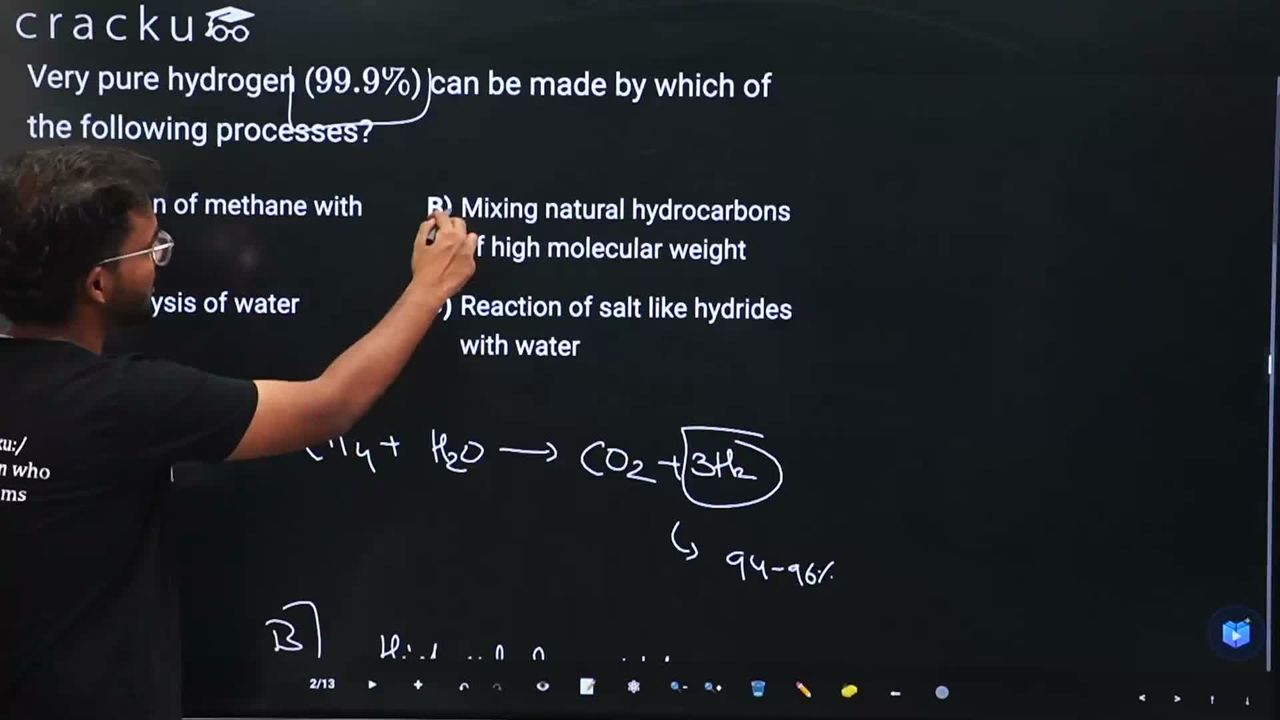 cracku
Very pure hydrogen (99.9%) can be made by which of
the following processes?
n of methane with
B) Mixing natural hydrocarbons
f high molecular weight
ysis of water
) Reaction of salt like hydrides
with water
ku:/
n who
ms
+ H2O → CO2 + 3H2
94-96%
B
2/13